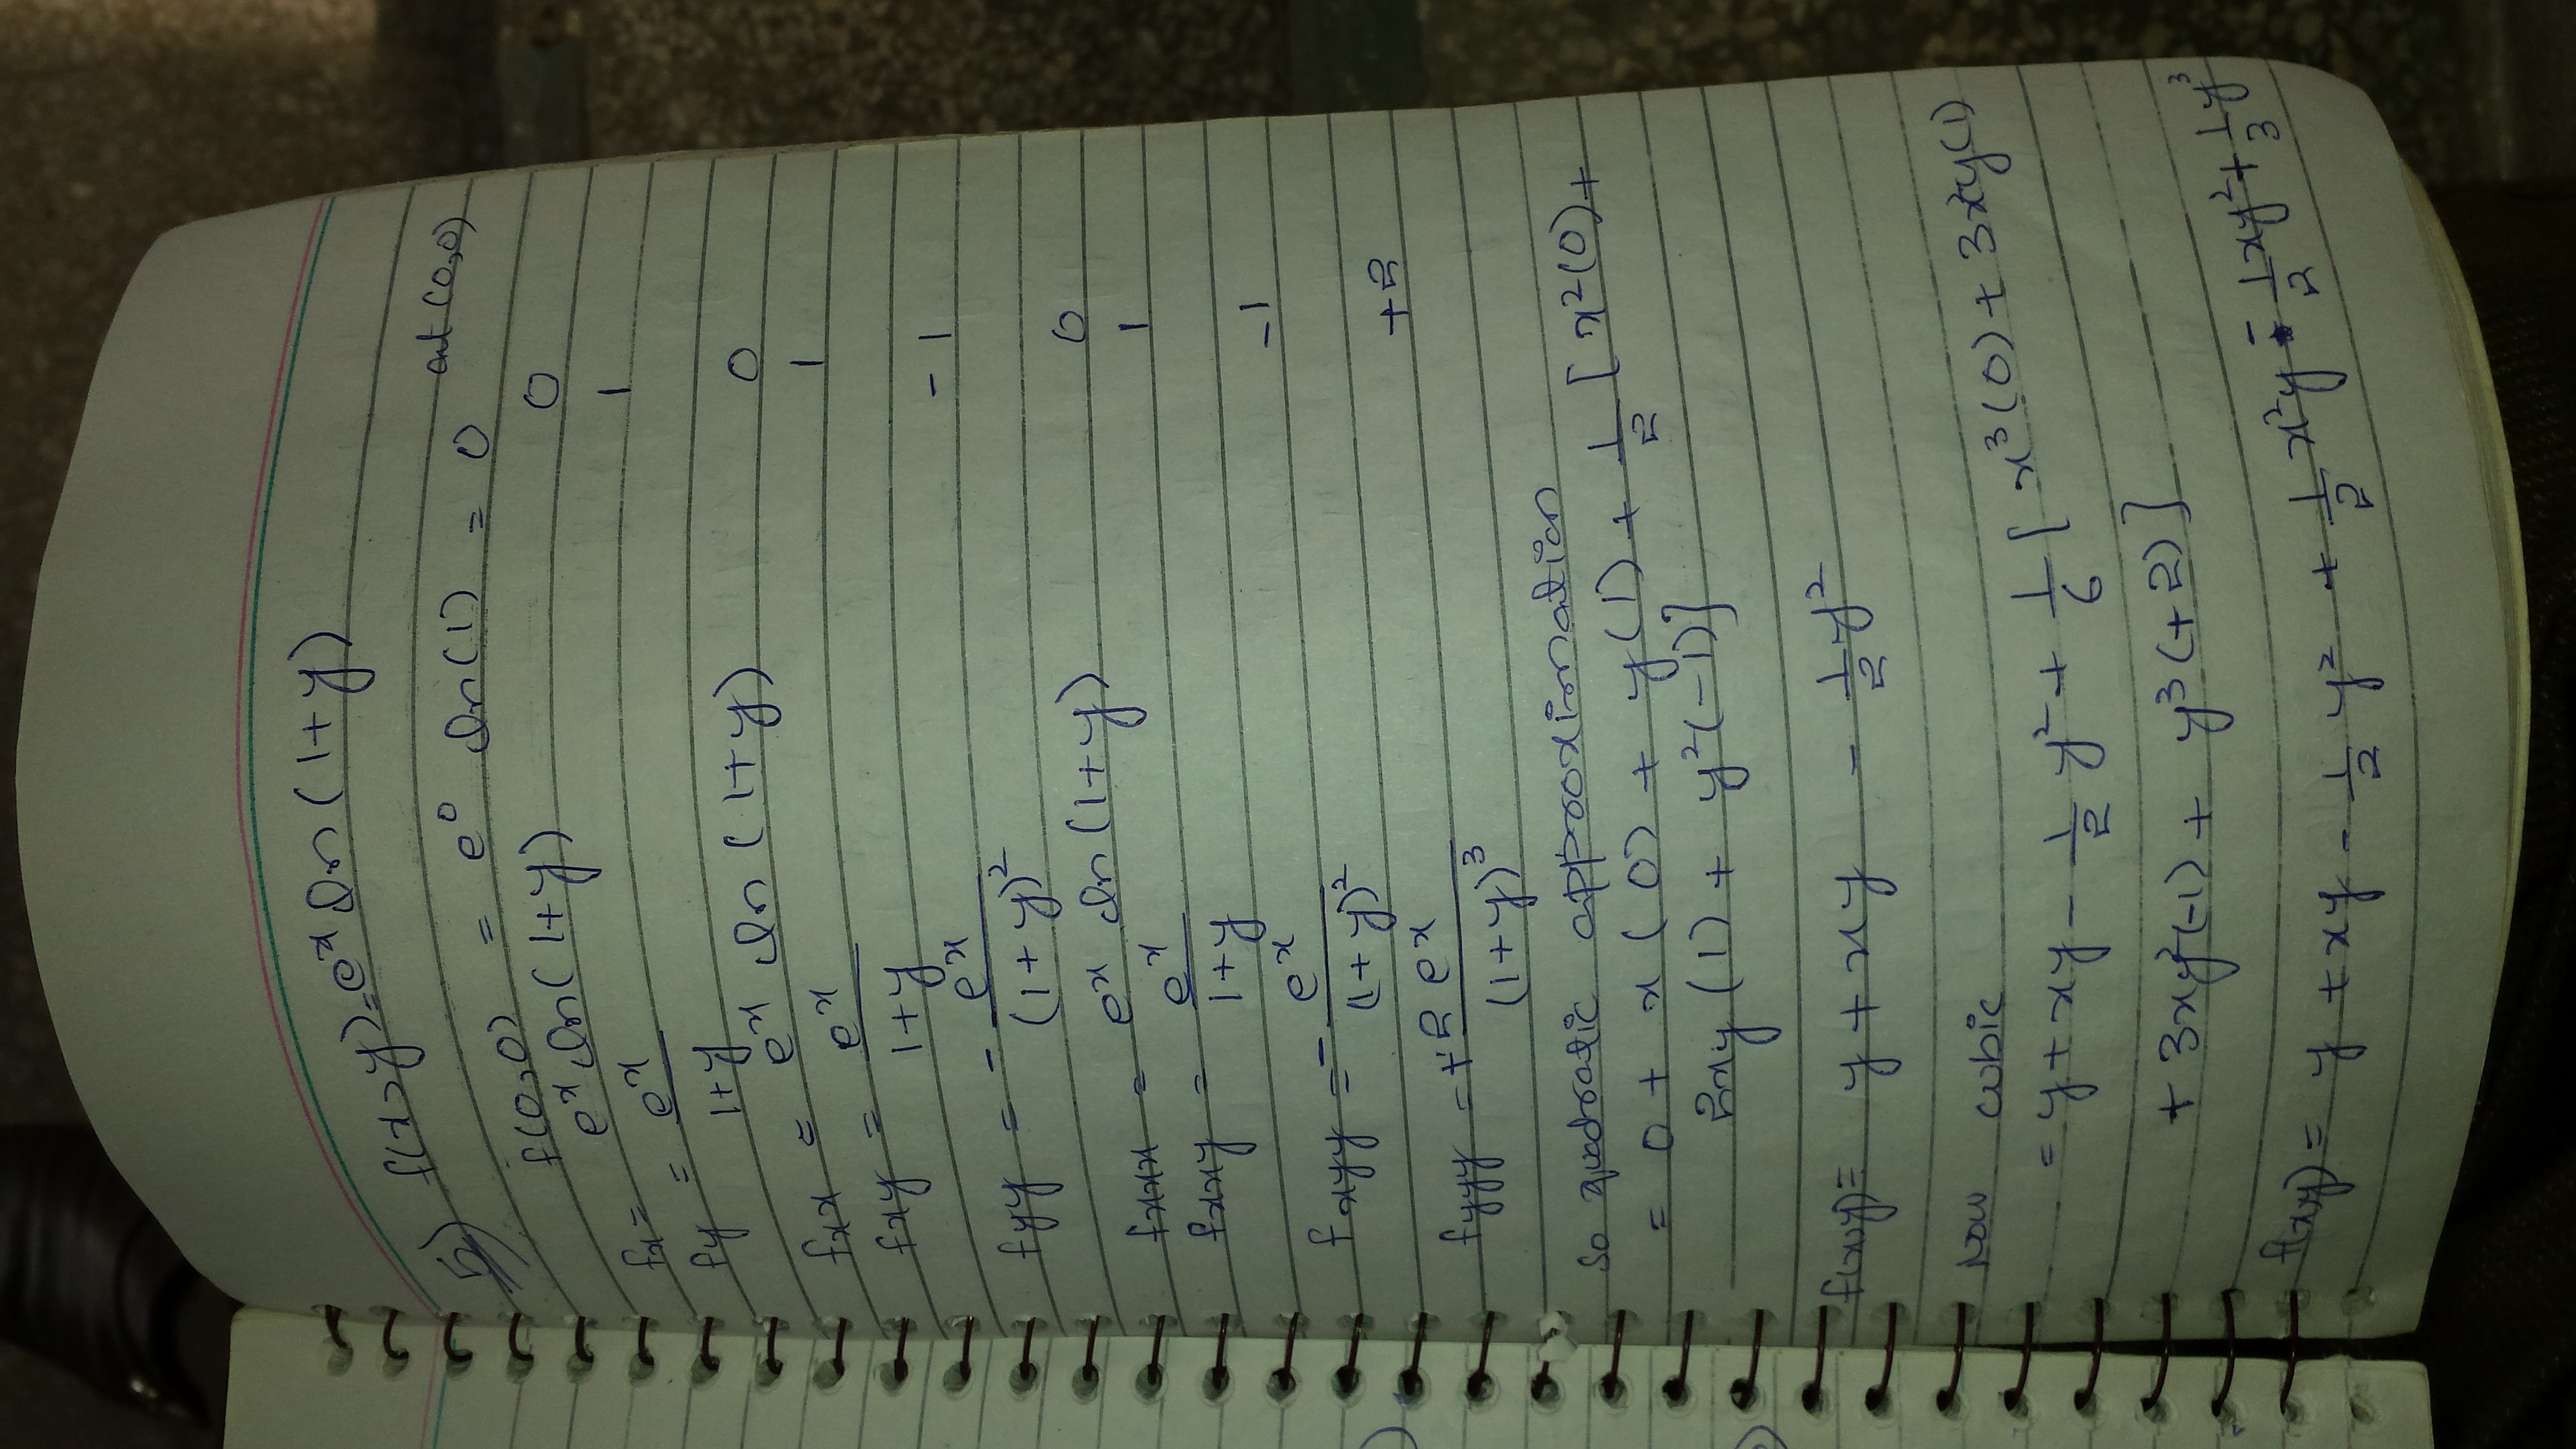 5) f(x,y)=e^x ln(1+y)
f(0,0) = e^0 ln(1) = 0 at (0,0)
fx= e^x ln(1+y) 0
fy = e^x/(1+y) 1
fxx = e^x ln(1+y) 0
fxy = e^x/(1+y) 1
fyy = - e^x/(1+y)^2 -1
fxxx = e^x ln(1+y) 0
fxxy = e^x/(1+y) 1
fxyy = - e^x/(1+y)^2 -1
fyyy = +2e^x/(1+y)^3 +2
So quadratic approximation
= 0 + x(0) + y(1) + 1/2 [x^2(0)+
2xy(1) + y^2(-1)]
f(x,y)= y+xy - 1/2 y^2
Now cubic
= y+xy - 1/2 y^2 + 1/6 [x^3(0) + 3x^2y(1)
+ 3xy^2(-1) + y^3(+2)]
f(x,y) = y +xy - 1/2 y^2 + 1/2 x^2y - 1/2 xy^2 + 1/3 y^3